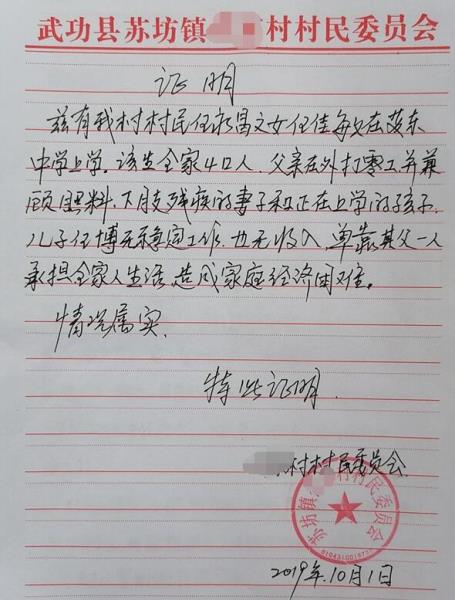 武功县苏坊镇 村村民委员会
证明
兹有我村村民任永昌之女任佳 在苏东
中学上学。该生全家4口人,父亲在外打零工并兼
顾照料下肢残疾的妻子和正在上学的孩子,
儿子任博无稳定工作,也无收入,单靠其父一人
承担全家人生活,造成家庭经济困难。
情况属实。
特此证明
村村民委员会
苏坊镇 村村民委员会
2019年10月1日